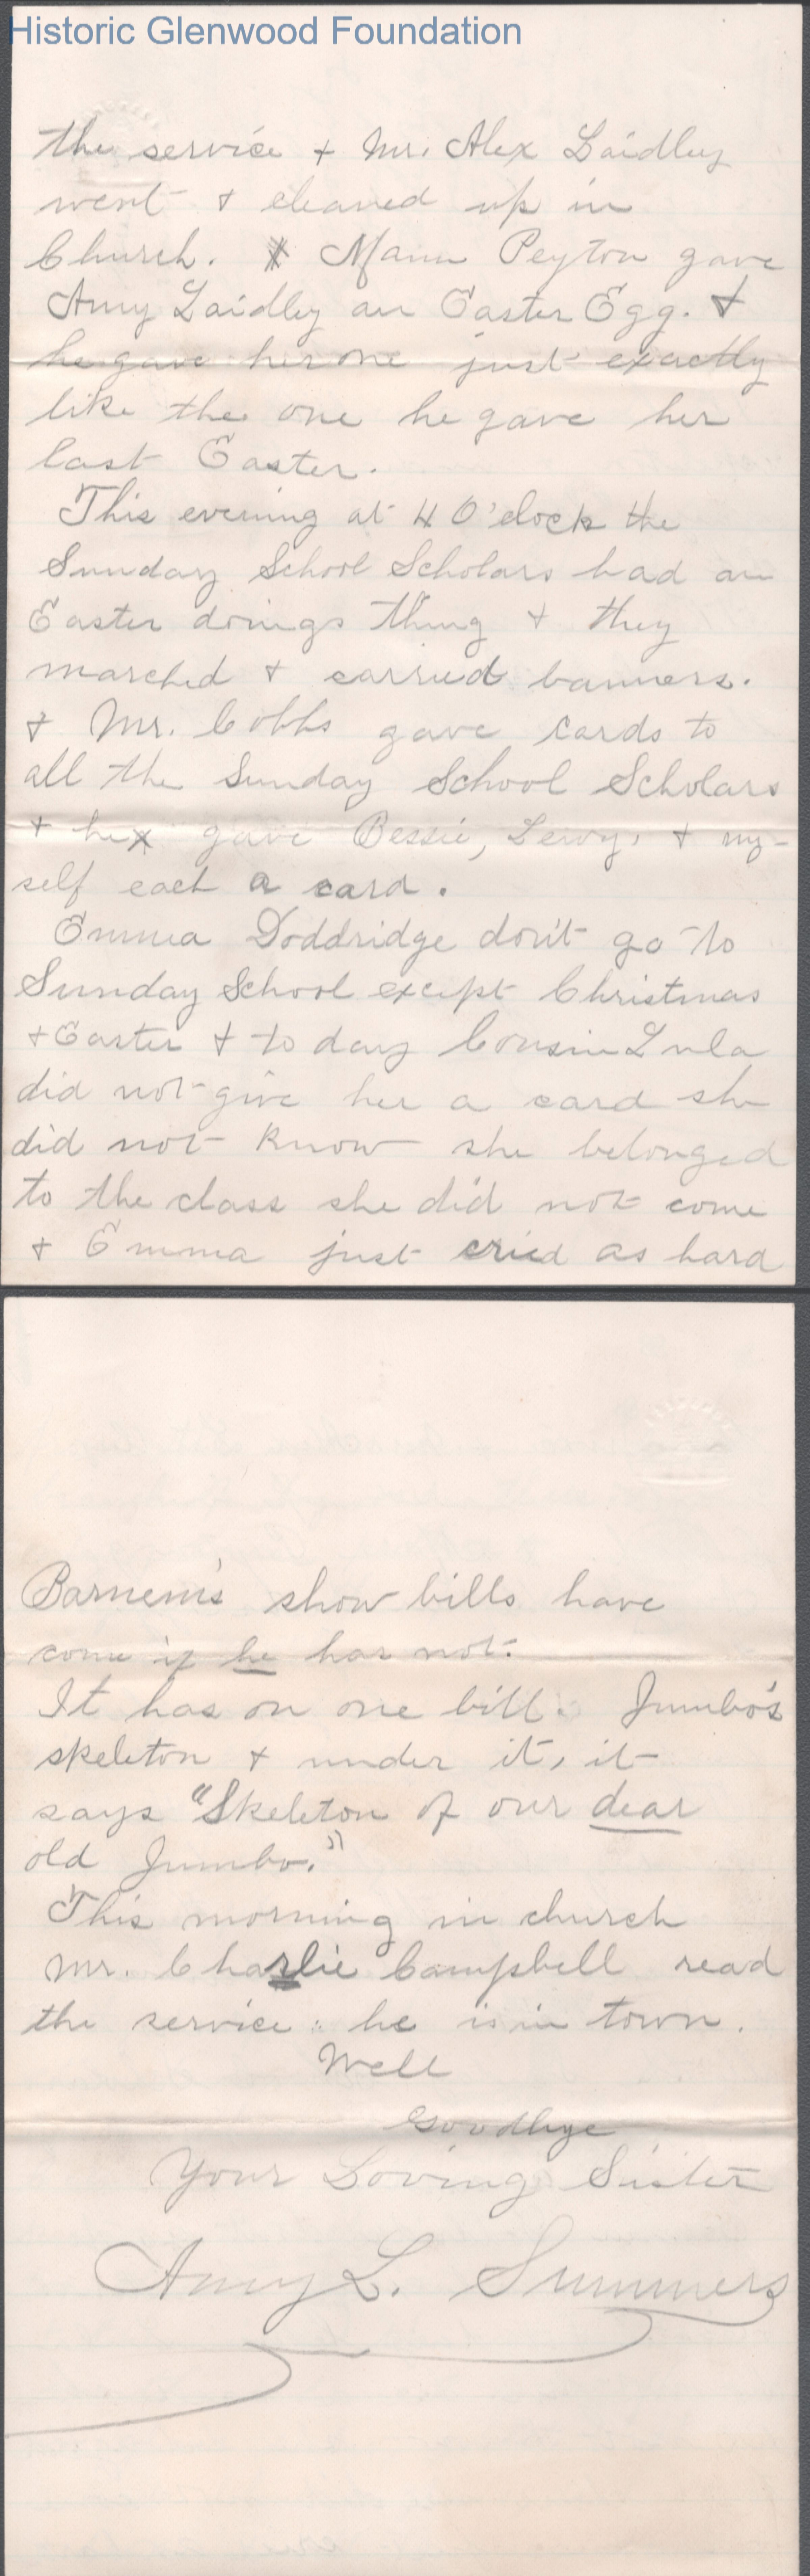 Historic Glenwood Foundation
the service & Mr. Alex Laidley
went & cleaned up in
Church. Mann Peyton gave
Amy Laidley an Easter Egg. &
he gave her one just exactly
like the one he gave her
last Easter.
This evening at 4 O'clock the
Sunday School Scholars had an
Easter doings thing & they
marched & carried banners.
& Mr. Cobbs gave cards to
all the Sunday School Scholars
& he gave Bessie, Lewy, & my-
self each a card.
Emma Doddridge don't go to
Sunday School except Christmas
& Easter & to day Cousin Lula
did not give her a card she
did not know she belonged
to the class she did not come
& Emma just cried as hard
Barnem's show bills have
come if he has not.
It has on one bill. Jumbo's
skeleton & under it, it
says "Skeleton of our dear
old Jumbo."
This morning in church
Mr. Charlie Campbell read
the service: he is in town.
Well
Goodbye
Your Loving Sister
Amy L. Summers